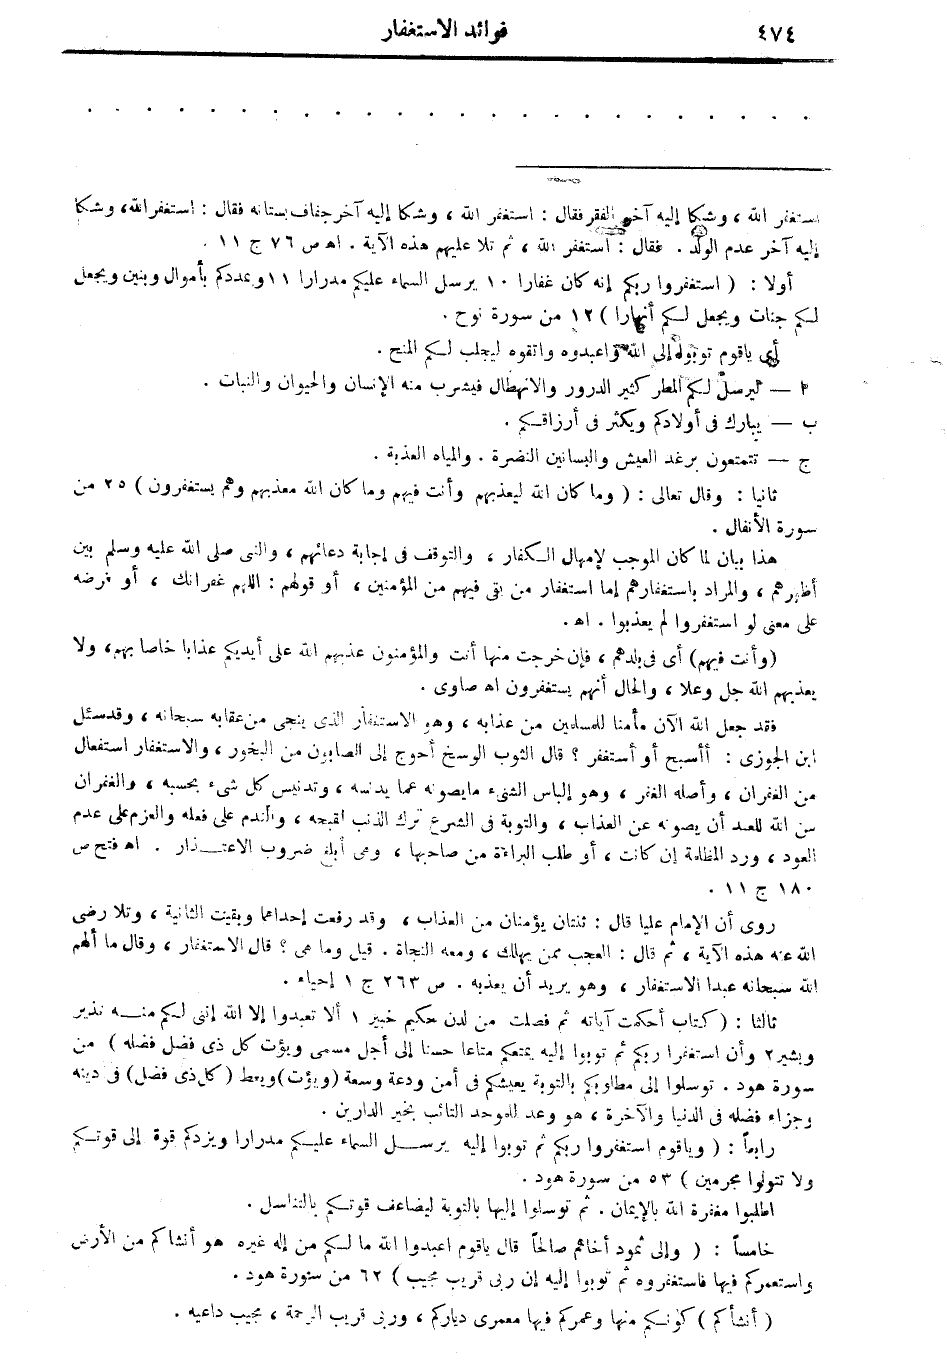 ٤٧٤
فوائد الاستغفار
استغفر الله ، وشكا إليه آخر الفقر فقال : استغفر الله ، وشكا إليه آخر جفاف بستانه فقال : استغفر الله، وشكا
إليه آخر عدم الولد . فقال : استغفر الله ، ثم تلا عليهم هذه الآية . اهـ ص ٧٦ ج ١١ .
أولا : ( استغفروا ربكم إنه كان غفارا ١٠ يرسل السماء عليكم مدرارا ١١ ويمددكم بأموال وبنين ويجعل
لكم جنات ويجعل لكم أنهارا ) ١٢ من سورة نوح .
أى ياقوم توبوا إلى الله واعبدوه واتقوه ليجلب لكم المنح .
ا — ليرسل لكم المطر كثير الدرور والانهطال فيشرب منه الإنسان والحيوان والنبات .
ب — يبارك فى أولادكم ويكثر فى أرزاقكم .
ج — تتمتعون برغد العيش والبساتين النضرة . والمياه العذبة .
ثانيا : وقال تعالى : ( وما كان الله ليعذبهم وأنت فيهم وما كان الله معذبهم وهم يستغفرون ) ٢٥ من
سورة الأنفال .
هذا بيان لما كان الموجب لإمهال الكفار ، والتوقف فى إجابة دعائهم ، والنبى صلى الله عليه وسلم بين
أظهرهم ، والمراد باستغفارهم إما استغفار من بقى فيهم من المؤمنين ، أو قولهم : اللهم غفرانك ، أو فرضه
على معنى لو استغفروا لم يعذبوا . اهـ .
(وأنت فيهم) أى فى بلدهم ، فإن خرجت منها أنت والمؤمنون عذبهم الله على أيديكم عذابا خاصا بهم، ولا
يعذبهم الله جل وعلا ، والحال أنهم يستغفرون اهـ صاوى .
فقد جعل الله الآن مأمنا للمسلمين من عذابه ، وهو الاستغفار الذى ينجى من عقابه سبحانه ، وقد سئل
ابن الجوزى : أأسبح أو أستغفر ؟ قال الثوب الوسخ أحوج إلى الصابون من البخور ، والاستغفار استفعال
من الغفران ، وأصله الغفر ، وهو إلباس الشىء مايصونه عما يدنسه ، وتدنيس كل شىء بحسبه ، والغفران
من الله للعبد أن يصونه عن العذاب ، والتوبة فى الشرع ترك الذنب لقبحه ، والندم على فعله والعزم على عدم
العود ، ورد المظلمة إن كانت ، أو طلب البراءة من صاحبها ، وهى أبلغ ضروب الاعتذار . اهـ فتح ص
١٨٠ ج ١١ .
روى أن الإمام عليا قال : ثنتان يؤمنان من العذاب ، وقد رفعت إحداهما وبقيت الثانية ، وتلا رضى
الله عنه هذه الآية ، ثم قال : العجب ممن يهلك ، ومعه النجاة . قيل وما هى ؟ قال الاستغفار ، وقال ما ألهم
الله سبحانه عبدا الاستغفار ، وهو يريد أن يعذبه . ص ٢٦٣ ج ١ إحياء .
ثالثا : (كتاب أحكمت آياته ثم فصلت من لدن حكيم خبير ١ ألا تعبدوا إلا الله إننى لكم منه نذير
وبشير ٢ وأن استغفرا ربكم ثم توبوا إليه يمتعكم متاعا حسنا إلى أجل مسمى ويؤت كل ذى فضل فضله ) من
سورة هود . توسلوا إلى مطلوبكم بالتوبة يعيشكم فى أمن ودعة وسعة (ويؤت) ويعط (كل ذى فضل) فى دينه
وجزاء فضله فى الدنيا والآخرة ، هو وعد للموحد التائب بخير الدارين .
رابعاً : ( وياقوم استغفروا ربكم ثم توبوا إليه يرسل السماء عليكم مدرارا ويزدكم قوة إلى قوتكم
ولا تتولوا مجرمين ) ٥٣ من سورة هود .
اطلبوا مغفرة الله بالإيمان . ثم توسلوا إليها بالتوبة ليضاعف قوتكم بالتناسل .
خامساً : ( وإلى ثمود أخاهم صالحاً قال ياقوم اعبدوا الله ما لكم من إله غيره هو أنشأكم من الأرض
واستعمركم فيها فاستغفروه ثم توبوا إليه إن ربى قريب مجيب ) ٦٢ من سورة هود .
( أنشأكم ) كونكم منها وعمركم فيها معمرى دياركم ، وربى قريب الرحمة ، مجيب داعيه .